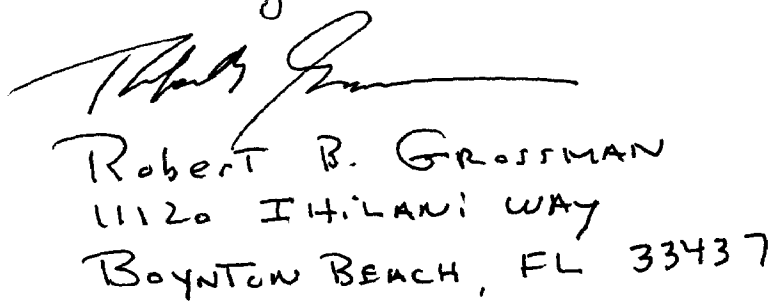 Robert B. Grossman
11120 IHiLANi WAY
BOYNTON BEACH, FL 33437